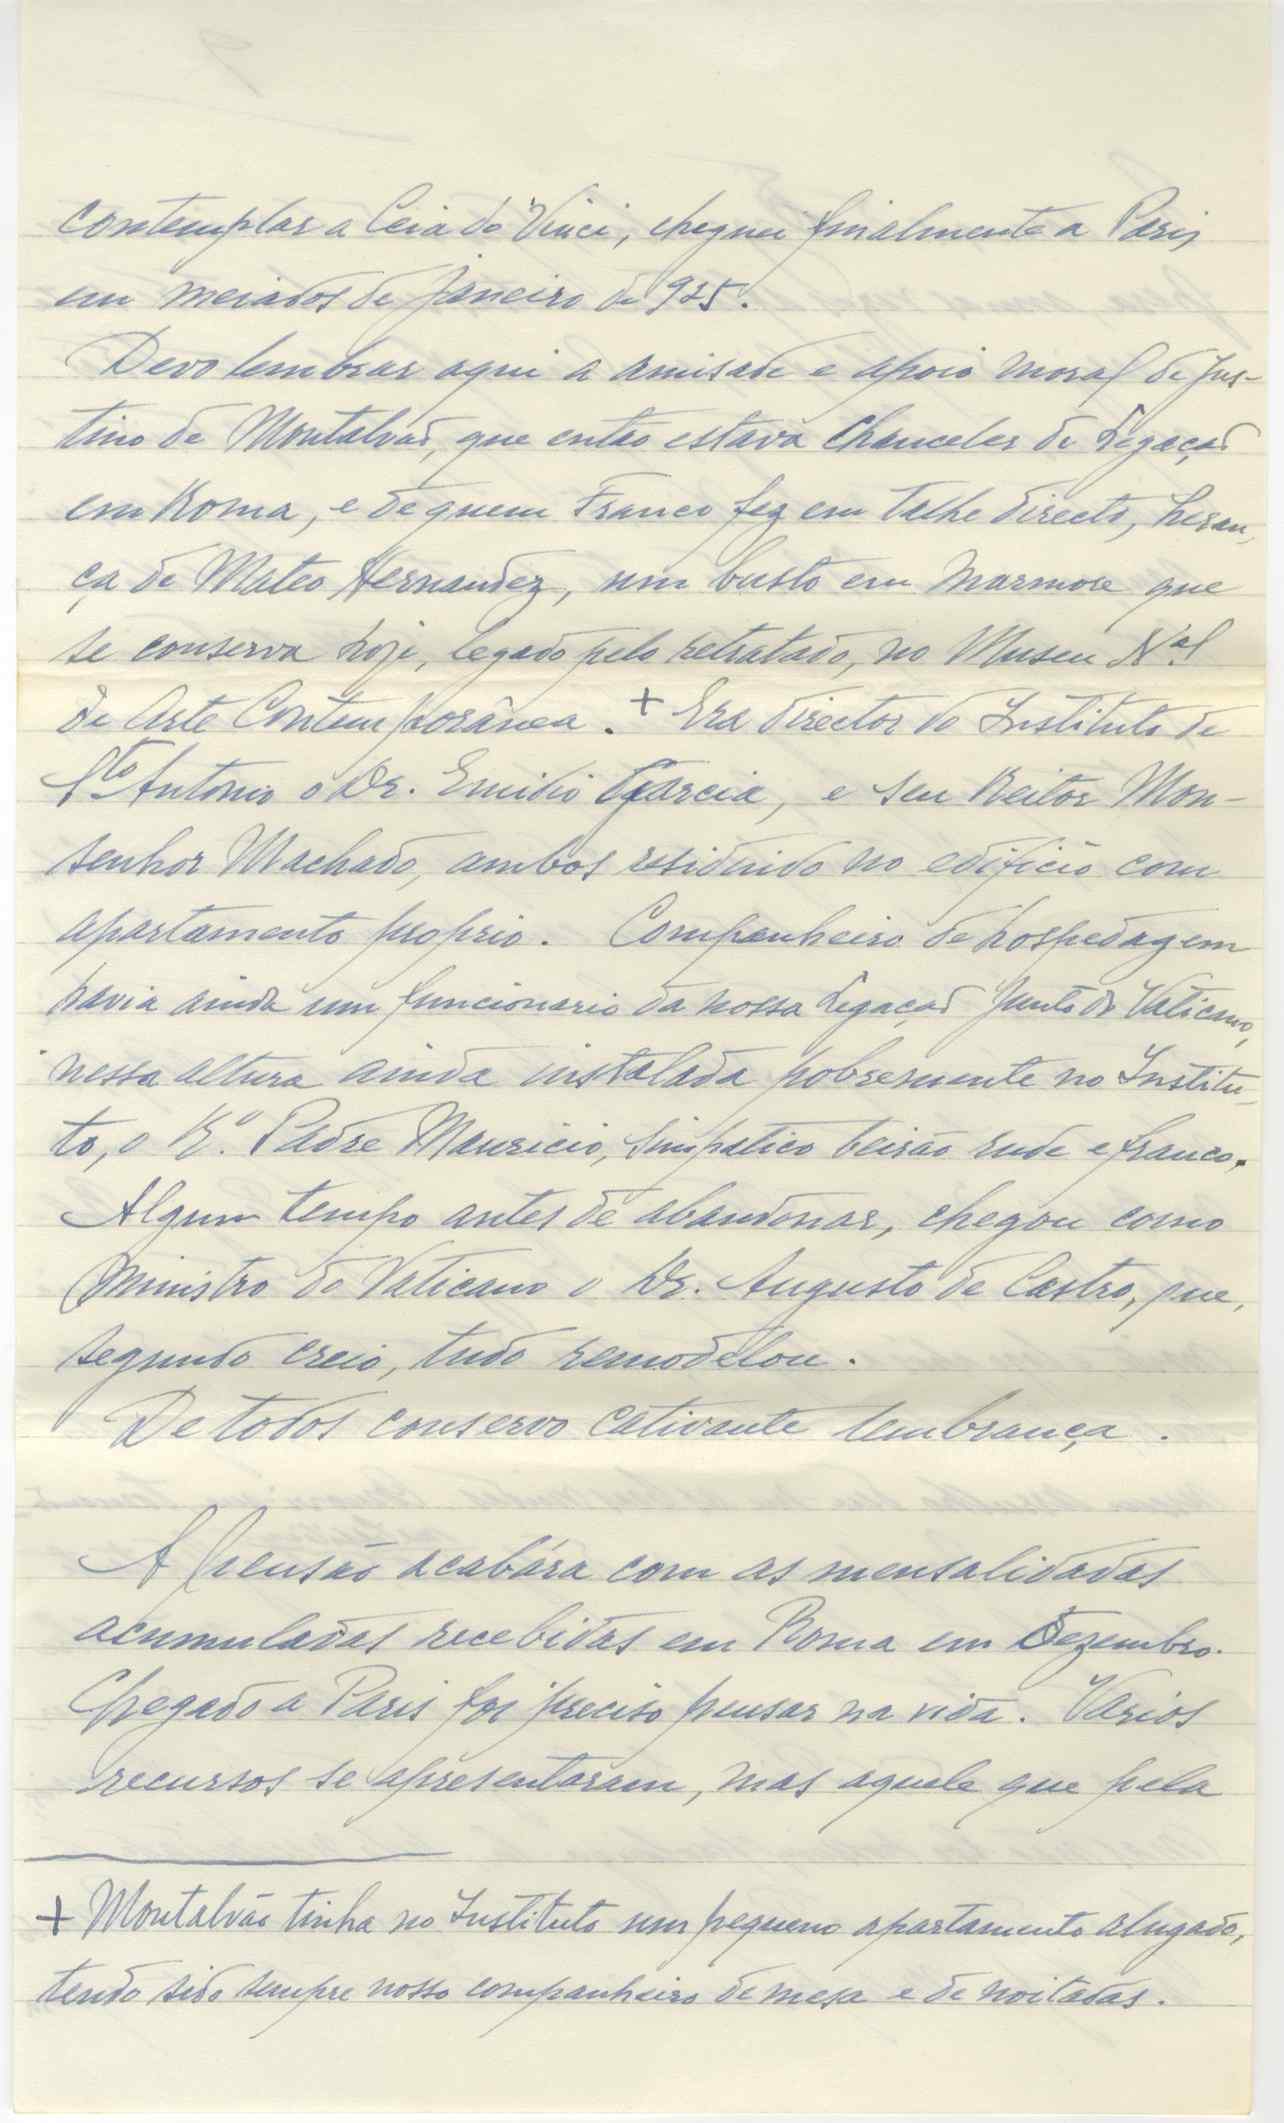 contemplar a Ceia do Vinci, cheguei finalmente a Paris
em meiados de janeiro de 925.
Devo lembrar aqui a amisade e apoio moral de Jus-
tino de Montalvão, que então estava chanceler da Legação
em Roma, e de quem Franco fez em talhe directo, heran-
ça de Mateo Hernandez, um busto em marmore que
se conserva hoje, legado pelo retratado, no Museu Nal
de Arte Contemporânea. + Era director do Instituto de
Sto Antonio o Dr. Emidio Garcia, e seu Reitor Mon-
senhor Machado, ambos residindo no edificio com
apartamento proprio. Companheiro de hospedagem
havia ainda um funcionario da nossa Legação junto do Vaticano,
nessa altura ainda instalada pobremente no Institu-
to, o Rº. Padre Mauricio, simpatico beirão rude e franco.
Algum tempo antes de abandonar, chegou como
Ministro do Vaticano o Dr. Augusto de Castro, que,
segundo creio, tudo remodelou.
De todos conservo cativante lembrança.
A pensão acabára com as mensalidades
acumuladas recebidas em Roma em Dezembro.
Chegado a Paris foi preciso pensar na vida. Varios
recursos se apresentaram, mas aquele que pela
+ Montalvão tinha no Instituto um pequeno apartamento alugado,
tendo sido sempre nosso companheiro de mesa e de noitadas.